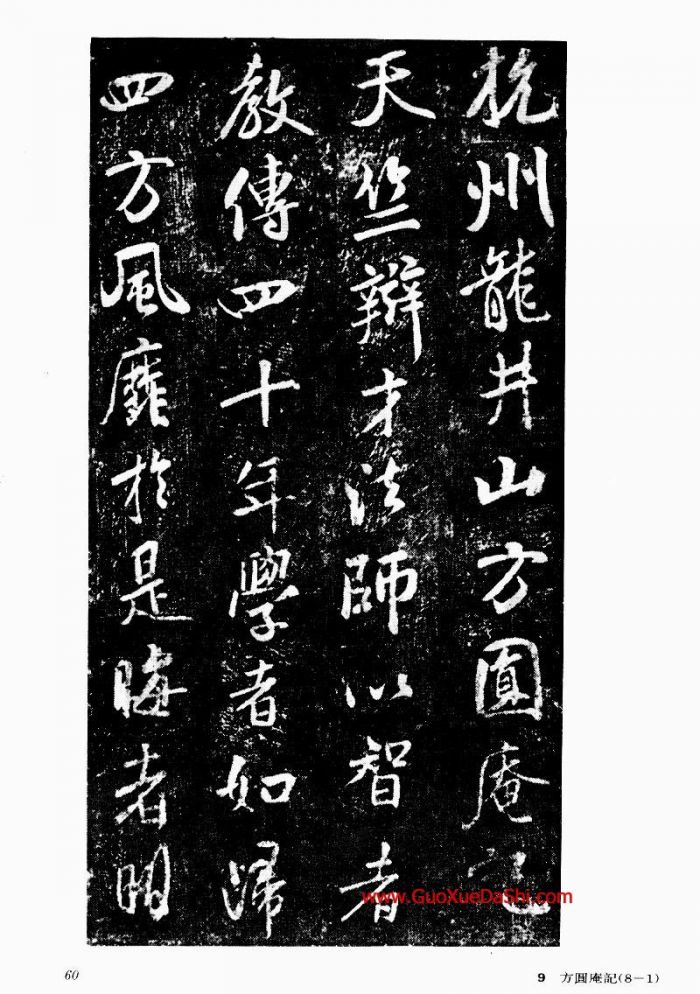 杭州龍井山方圓庵記
天竺辯才法師以智者
教傳四十年學者如歸
四方風靡於是晦者明
www.GuoXueDaShi.com
60
9 方圓庵記(8-1)